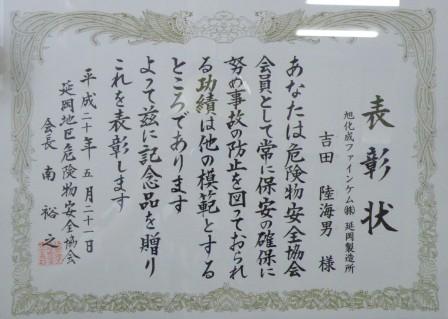 表彰状
旭化成ファインケム㈱ 延岡製造所
吉田 陸海男 様
あなたは危険物安全協会
会員として常に保安の確保に
努め事故の防止を図っておられ
る功績は他の模範とする
ところであります
よって茲に記念品を贈り
これを表彰します
平成二十年 五月二十一日
延岡地区危険物安全協会
会長 南 裕之